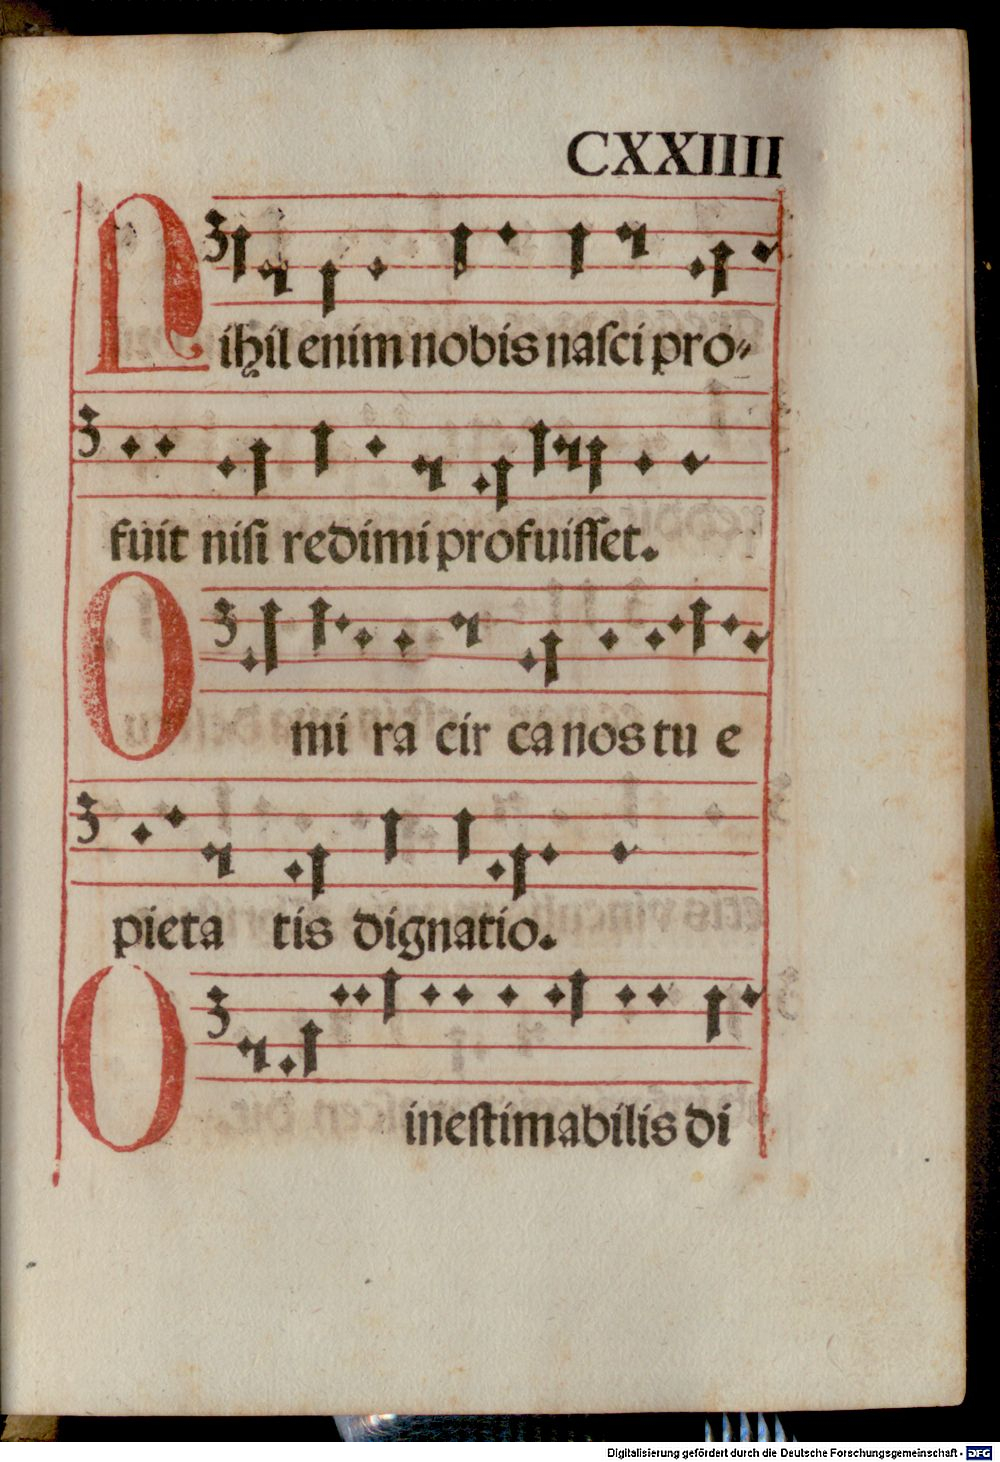 CXXIIII
Nihil enim nobis naſci pro⸗
fuit niſi redimi profuiſſet.
O mi ra cir ca nos tu e
pieta tis dignatio.
O ineſtimabilis di
Digitalisierung gefördert durch die Deutsche Forschungsgemeinschaft - DFG